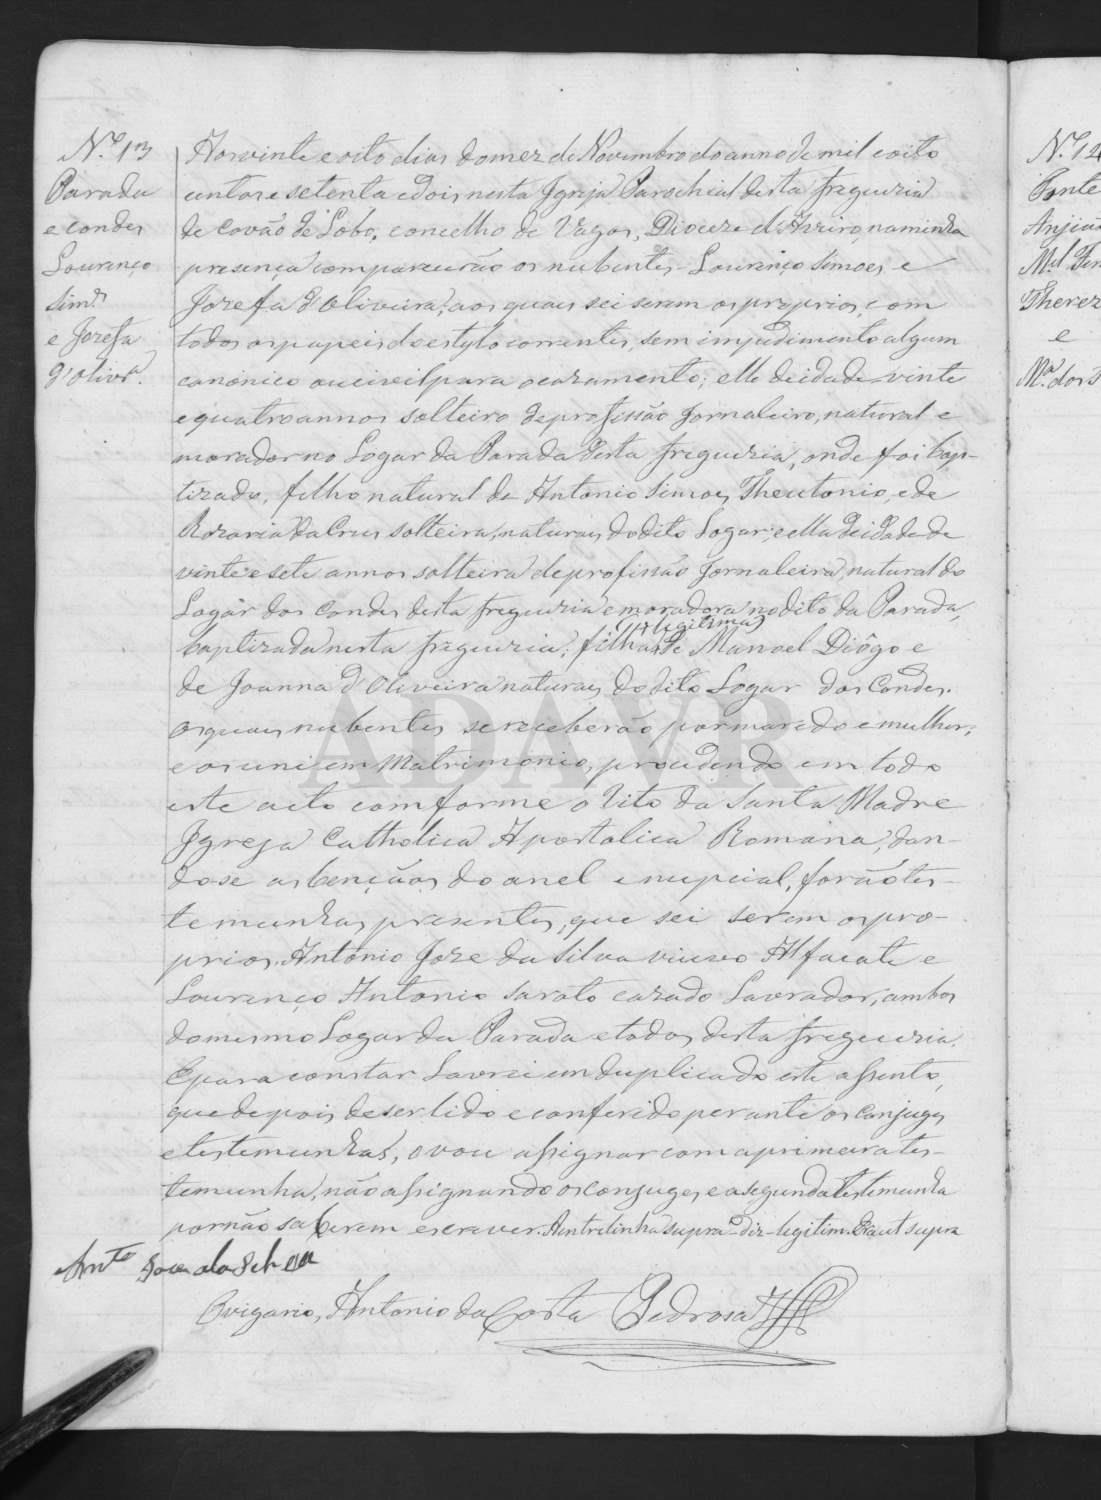 N.º 13
Parada
e condes
Lourenço
Sim.s
e Jozefa
d'Olivr.ª
Aos vinte e oito dias do mez de Novembro do anno de mil e oito
centos e setenta e dois nesta Igreja Parochial desta freguezia
de Covão de Lobo, concelho de Vagos, Dioceze d'Aveiro, na minha
presença comparecerão os nubentes - Lourenço Simoes e
Jozefa d'Oliveira, aos quaes sei serem os proprios, com
todos os papeis do estylo correntes, sem impedimento algum
canonico ou civil para o cazamento; elle de idade vinte
e quatro annos solteiro de profissão Jornaleiro, natural e
morador no Logar da Parada desta freguezia, onde foi bap-
tizado, filho natural de Antonio Simoes Theutonio, e de
Rozaria da Crus solteira, naturaes do dito Logar; e ella de idade de
vinte e sete annos solteira de profissão Jornaleira, natural do
Logar dos Condes desta freguezia e moradora no dito da Parada,
baptizada nesta freguezia; filha de Manoel Diôgo e
legitima
de Joanna d'Oliveira naturaes do dito Logar dos Condes.
os quaes nubentes se receberão por marido e mulher,
e os uni em Matrimonio, procedendo em todo
este acto comforme o Rito da Santa Madre
Igreja Catholica Apostolica Romana, dan-
do se as bençãos do anel e nupcial, forão tes-
temunhas presentes, que sei serem os pro-
prios. Antonio Joze da Silva viuvo Alfaiate e
Lourenço Antonio Sarato cazado Lavrador, ambos
do mesmo Logar da Parada e todos desta freguezia.
E para constar Lavrei em duplicado este assento,
que depois de ser lido e conferido perante os Conjuges
e testemunhas, o vou assignar com a primeira tes-
temunha, não assignando os conjuges e a segunda testemunha
por não saberem escrever. A entrelinha supra diz - legitim. Era ut supra
Ant.º Joze da Silva
O vigario, Antonio da Costa Pedrosa
ADAVR
N.º 14
Ponte
M.el Fer
Therez
e
M.ª dos